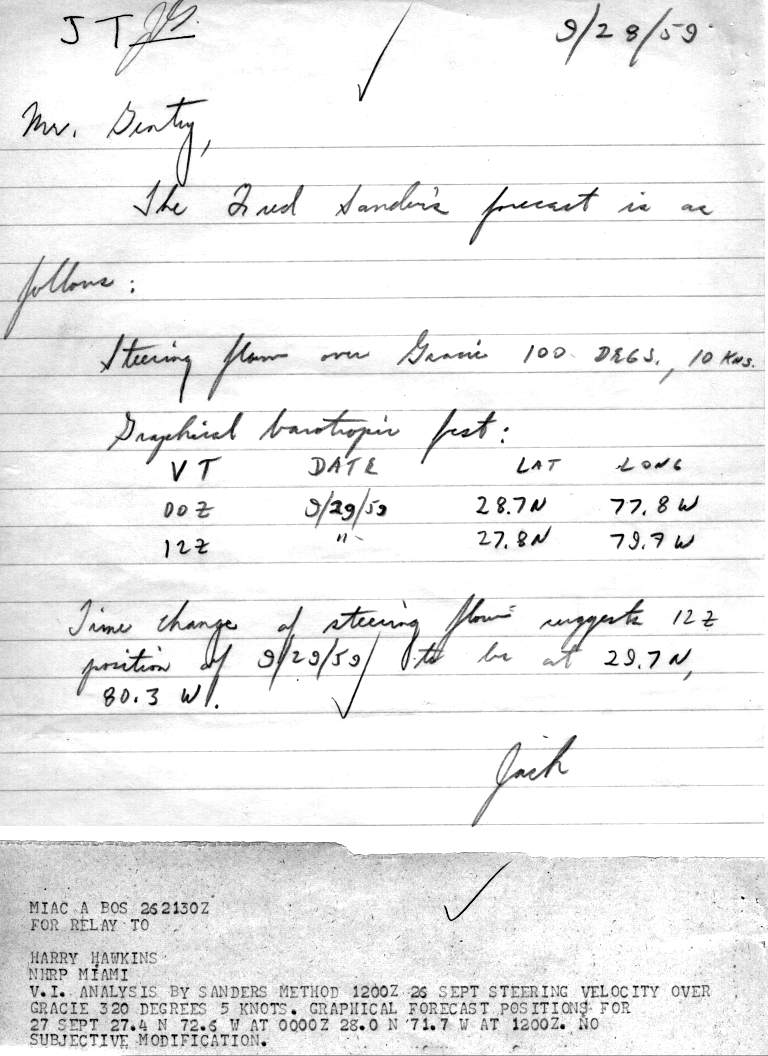 JT JG 9/28/59
Mr. Gentry,
The Fred Sander's forecast is as
follows:
Steering flow over Gracie 100 DEGS., 10 KNS.
Graphical barotropic fcst:
VT DATE LAT LONG
00Z 9/29/59 28.7N 77.8W
12Z " 27.8N 79.7W
Time change of steering flow suggests 12Z
position of 9/29/59 to be at 29.7N,
80.3 W.
Jack
MIAC A BOS 262130Z
FOR RELAY TO
HARRY HAWKINS
NHRP MIAMI
V.I. ANALYSIS BY SANDERS METHOD 1200Z 26 SEPT STEERING VELOCITY OVER
GRACIE 320 DEGREES 5 KNOTS. GRAPHICAL FORECAST POSITIONS FOR
27 SEPT 27.4 N 72.6 W AT 0000Z 28.0 N 71.7 W AT 1200Z. NO
SUBJECTIVE MODIFICATION.